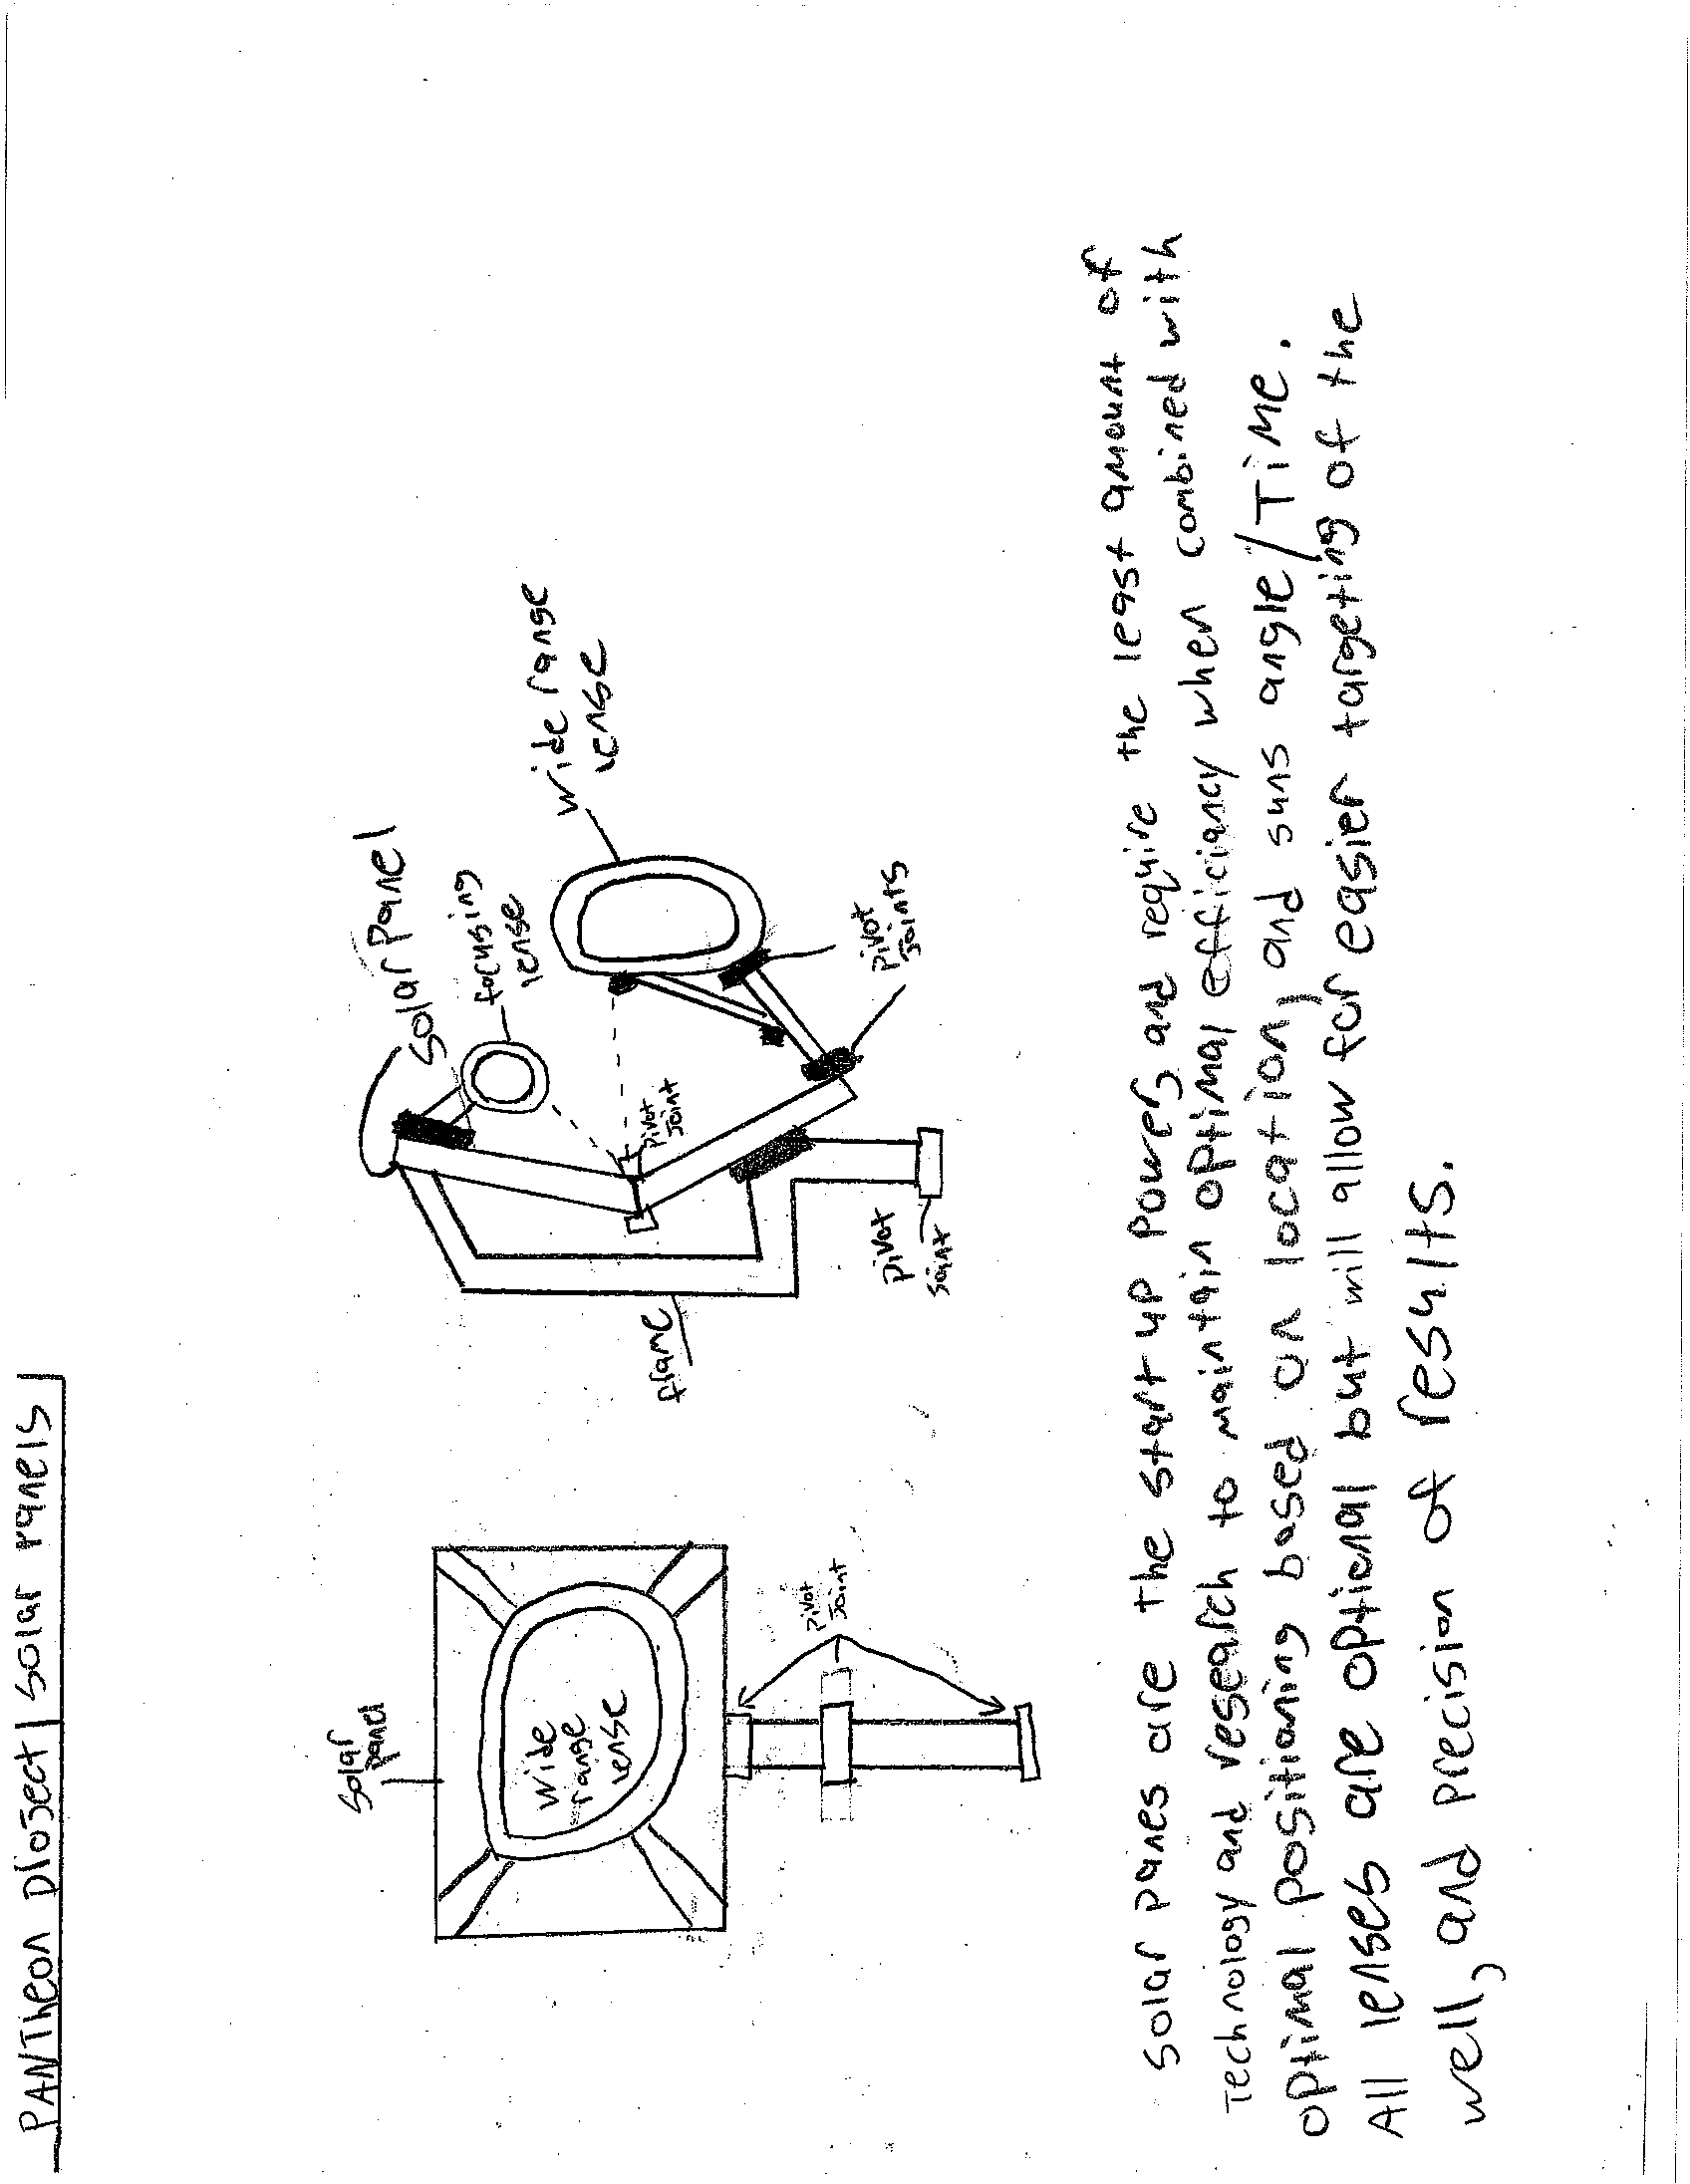 PANTheon Project | Solar Panels
Solar
Panel
wide
range
lense
Pivot
Joint
Solar Panel
focusing
lense
wide range
lense
Pivot
Joint
Pivot
Joints
frame
Pivot
Joint
Solar panes are the start up Power, and require the least amount of
Technology and research to maintain optimal efficiancy when combined with
optimal positioning based on location, and suns angle/Time.
All lenses are optional but will allow for easier targeting of the
well, and precision of results.